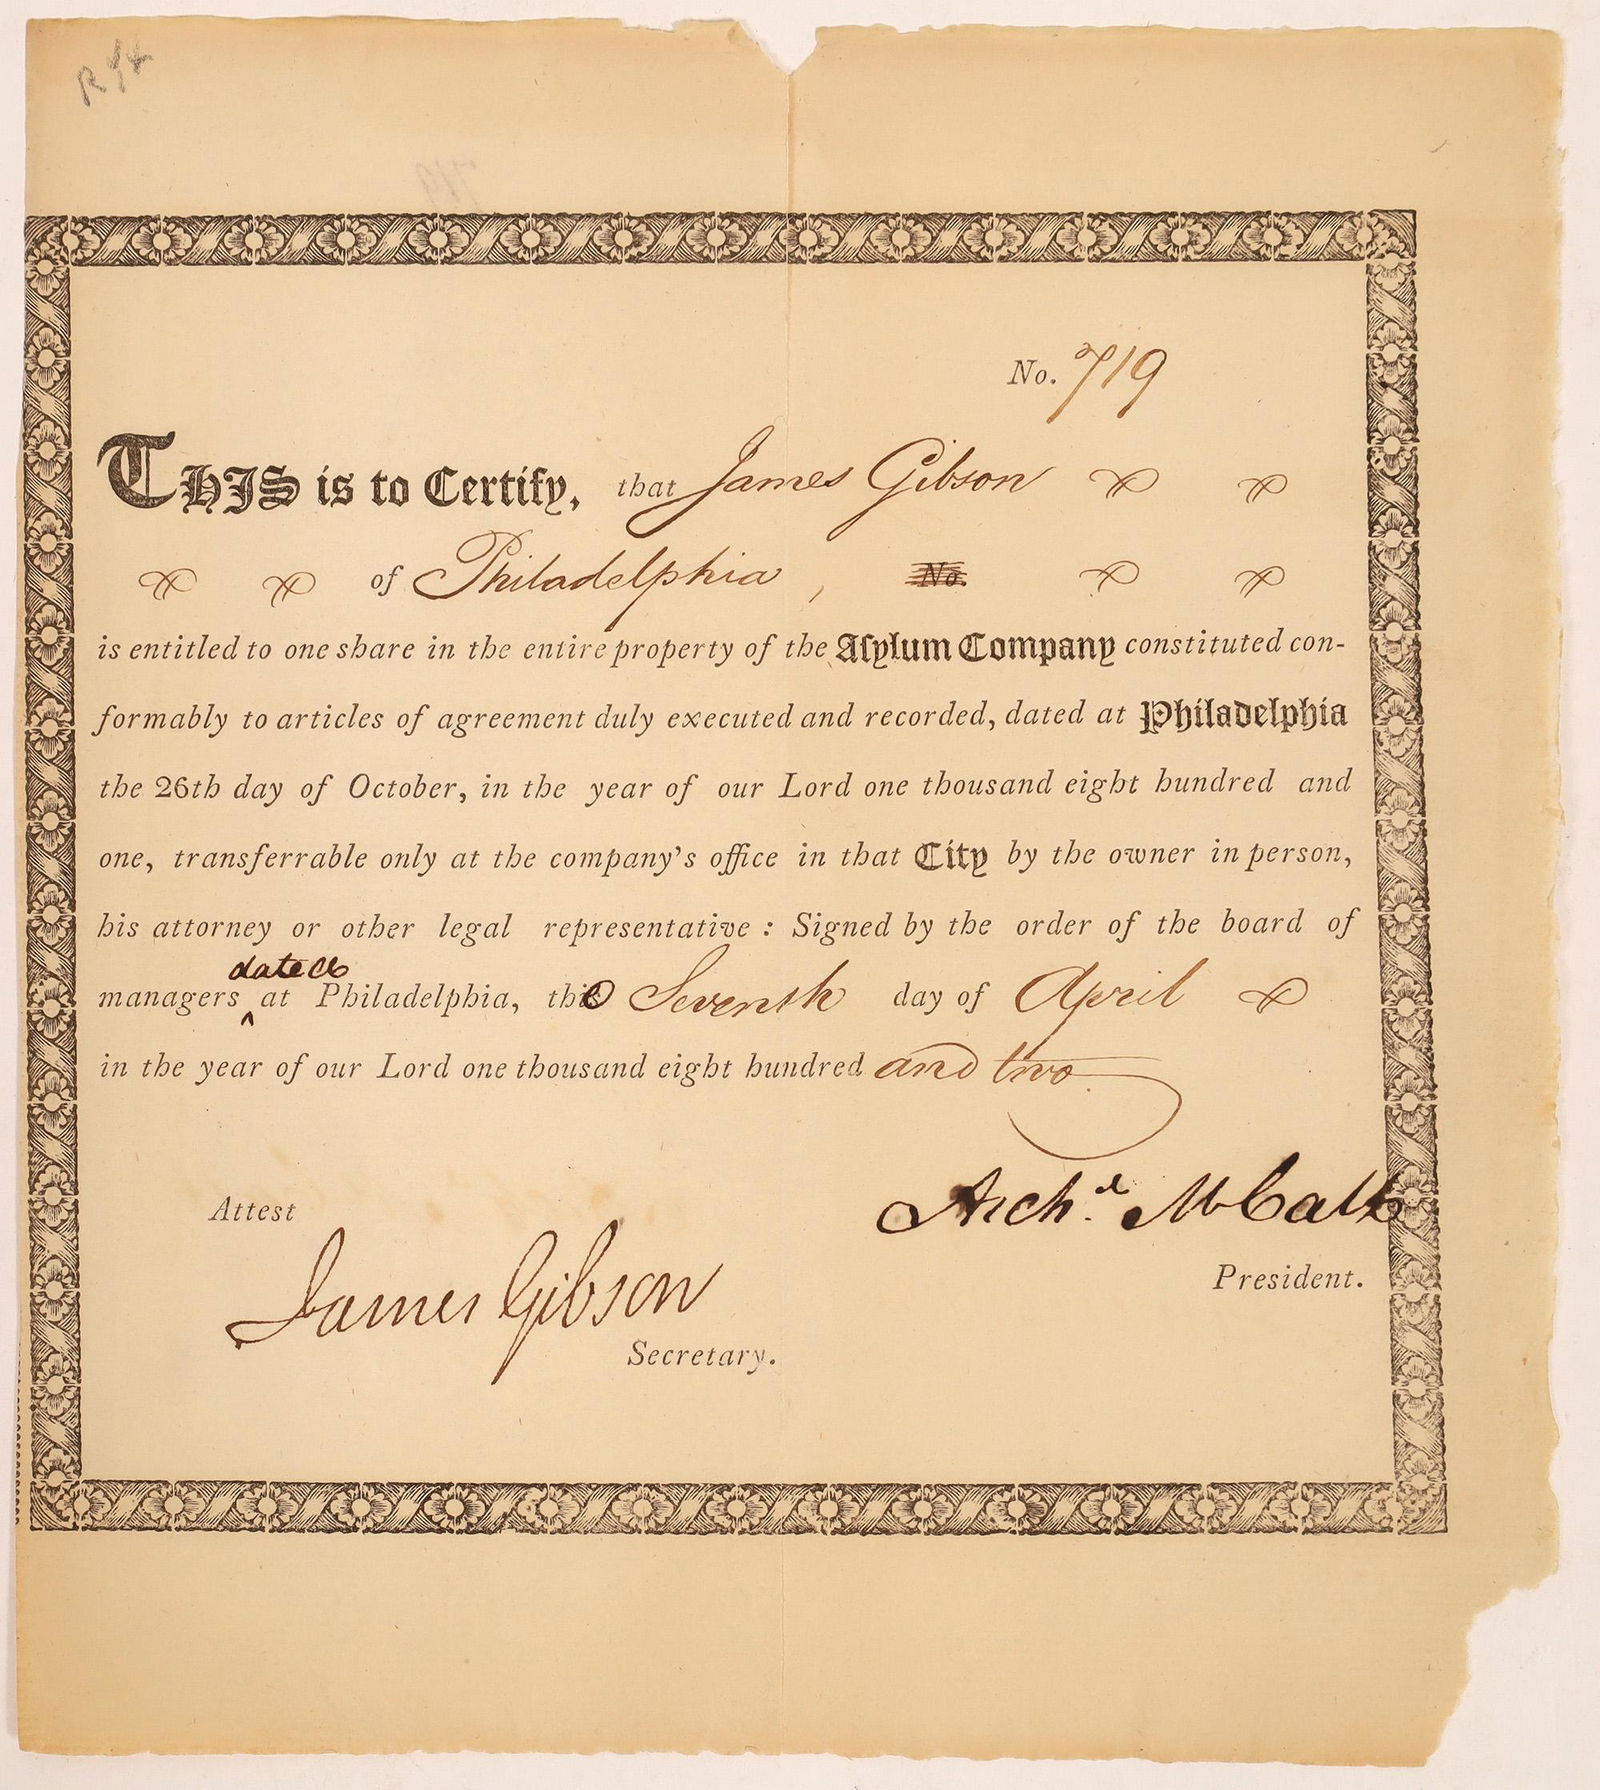 No. 719
THIS is to Certify, that James Gibson
of Philadelphia, No.
is entitled to one share in the entire property of the Asylum Company constituted con-
formably to articles of agreement duly executed and recorded, dated at Philadelphia
the 26th day of October, in the year of our Lord one thousand eight hundred and
one, transferrable only at the company's office in that City by the owner in person,
his attorney or other legal representative : Signed by the order of the board of
dated
managers ^ at Philadelphia, the Seventh day of April
in the year of our Lord one thousand eight hundred and two
Archd. McCall
Attest
President.
James Gibson
Secretary.